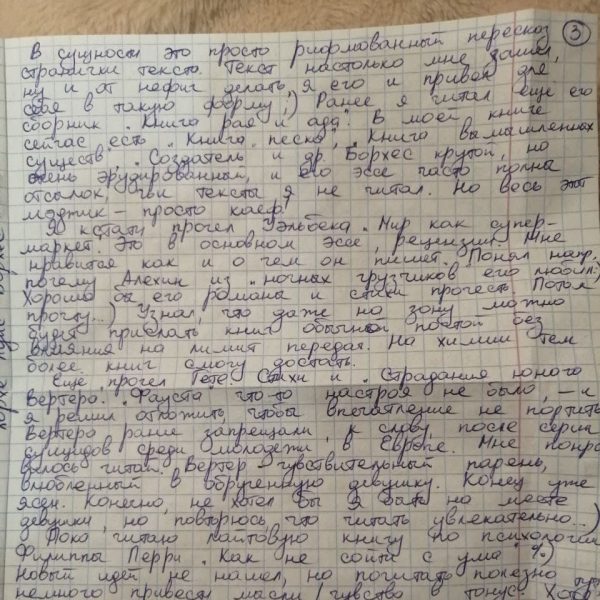 3
В сущности это просто рифмованный пересказ
странички текста. Текст настолько мне зашёл,
ну и от нефиг делать, я его и привёл для
себя в такую форму:) Ранее я читал ещё его
сборник „Книга рая и ада". В моей книге
сейчас есть „Книга песка", „Книга вымышленных
существ", „Создатель" и др. Борхес крутой, но
очень эрудированный, и его эссе часто полны
отсылок, чьи тексты я не читал. Но весь этот
мэджик – просто кайф!
Я кстати прочёл Уэльбека „Мир как супер-
маркет". Это в основном эссе, рецензии. Мне
нравится как и о чём он пишет. Понял напр.
почему Алехин из „ночных грузчиков" его любил:)
Хорошо бы его романы и стихи прочесть. Потом
прочту...) Узнал, что даже на зону можно
будет присылать книги обычной почтой без
влияния на лимит передач. На химии тем
более книг смогу достать.
Ещё прочёл Гёте „Стихи" и „Страдания юного
Вертера". „Фауста" что-то настроя не было, – и
я решил отложить, чтобы впечатление не портить
Вертера ранее запрещали, к слову после серии
суицидов среди молодёжи в Европе. Мне понра-
вилось читать. Вертер чувствительный парень,
влюбленный в обрученную девушку. Конец уже
ясен. Конечно, не хотел бы я быть на месте
девушки, но повторюсь что читать увлекательно...)
Пока читаю лайтовую книгу по психологии
Филиппы Перри „Как не сойти с ума" %)
Новых идей не нашёл, но почитать полезно
немного привести мысли/чувства в тонус.
Хорхе Луис Борхес